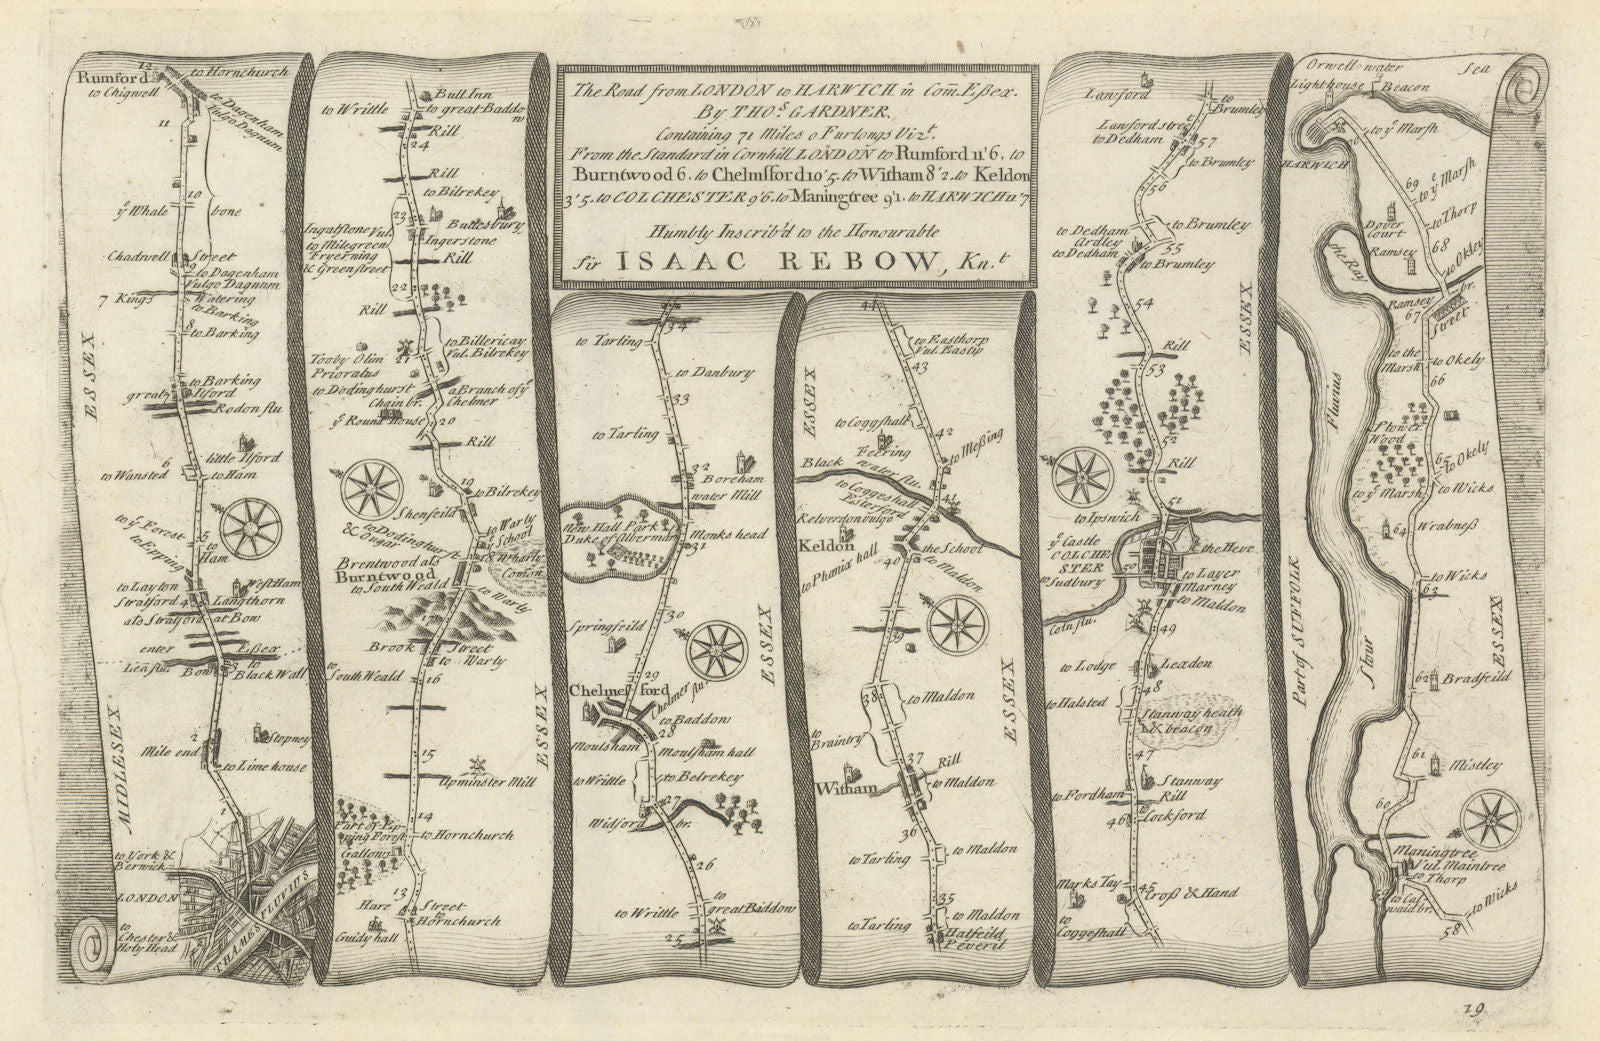 The Road from LONDON to HARWICH in Com. Eßex.
By THOS. GARDNER.
Containing 71 Miles 0 Furlongs Vizt.
From the Standard in Cornhill LONDON to Rumford 11'6. to
Burntwood 6. to Chelmsford 10'5. to Witham 8'2. to Keldon
3'5. to COLCHESTER 9'6. to Maningtree 9'1. to HARWICH 11'7
Humbly Inscrib'd to the Honourable
Sir ISAAC REBOW, Kn.t
12
Rumford
to Hornchurch
to Chigwell
to Dagenham
Vulgo Dagnum
11
10
ye Whale
bone
Chadwell
Street
9
to Dagenham
Vulgo Dagnum
7 Kings
Watering
to Barking
8
to Barking
to Barking
great
7
Ilford
Rodon flu
little Ilford
6
to Wansted
to Ham
to ye Forest
5
to Epping
to
Ham
to Layton
West Ham
Stratford
4
Langthorn
als Stratford at Bow
enter
Eßex
Lea flu.
Bow
3
to
Black Wall
Stepney
2
Mile end
to Limehouse
1
to York &
Berwick
LONDON
to
Chester &
Holy Head
THAMES FLUVIUS
ESSEX
MIDLESEX
Bull Inn
to Writtle
to great Baddo
w
Rill
24
Rill
to Bilrekey
23
Buttesbury
Ingatstone Vul.
to Milegreen
Ingerstone
Fryerning
& Greenstreet
Rill
22
Rill
to Billericay
Vul. Bilrekey
Tooby Olim
Prioratus
21
to Dodinghurst
a Branch of ye
Chelmer
Chain br.
ye Round House
20
Rill
19
to Bilrekey
Shenfeild
to Dodinghurst
& Ongar
to Warly
ye School
& Wharly
Comon
Brentwood als
Burntwood
to South Weald
to Warly
17
Brook
Street
to Warly
to
South Weald
16
15
Upminster Mill
14
Part of Ep
ping Forest
to Hornchurch
Gallows
13
Hare
Street
to
Hornchurch
Guidy hall
ESSEX
34
to Tarling
to Danbury
33
to Tarling
32
Boreham
water Mill
New Hall Park
Duke of Albermarl
Monks head
31
30
Springfeild
29
Chelmesford
Chelmer flu
to Baddow
28
Moulsham
Moulsham hall
to Writtle
to Belrekey
27
Widford
br.
26
to Writtle
to
great Baddow
25
ESSEX
44
to Easthorp
Vul. Eastip
43
to Coggshall
42
Feering
to Meßing
Black
water flu.
to Coggeshall
41
Easterford
Kelverdon vulgo
Keldon
the School
to Phœnix hall
40
to Maldon
39
38
to Maldon
to
Braintry
37
Rill
Witham
to Maldon
36
to Tarling
to Maldon
35
to Tarling
to Maldon
Hatfeild
Peveril
ESSEX
ESSEX
Lawford
to
Brumley
Lawford street
to Dedham
57
to Brumley
56
to Dedham
to Brumley
Ardley
to Dedham
55
to Brumley
54
Rill
53
52
Rill
51
to Ipswich
ye Castle
COLCHE
STER
the Heve
50
to Sudbury
to Layer
Marney
to Maldon
Coln flu.
49
to Lodge
Lexden
48
to Halsted
Stanway heath
& beacon
47
Stanway
to Fordham
Rill
46
Cockford
Marks Tay
45
Croß & Hand
to
Coggeshall
ESSEX
Orwell water
Sea
Light house
Beacon
70
to ye Marsh
HARWICH
69
to ye Marsh
to Thorp
Dover
Court
68
the Ray
Ramsey
to Okely
Ramsey
br.
67
Street
to the
Marsh
to Okely
66
Plower
Wood
65
to Okely
to ye Marsh
to Wicks
64
Wrabneß
to Wicks
63
62
Bradfeild
61
Mistley
60
Maningtree
Vul. Maintree
to Thorp
59
to Cat
waid br.
to Wicks
58
Fluvius
Stour
Part of SUFFOLK
ESSEX
19